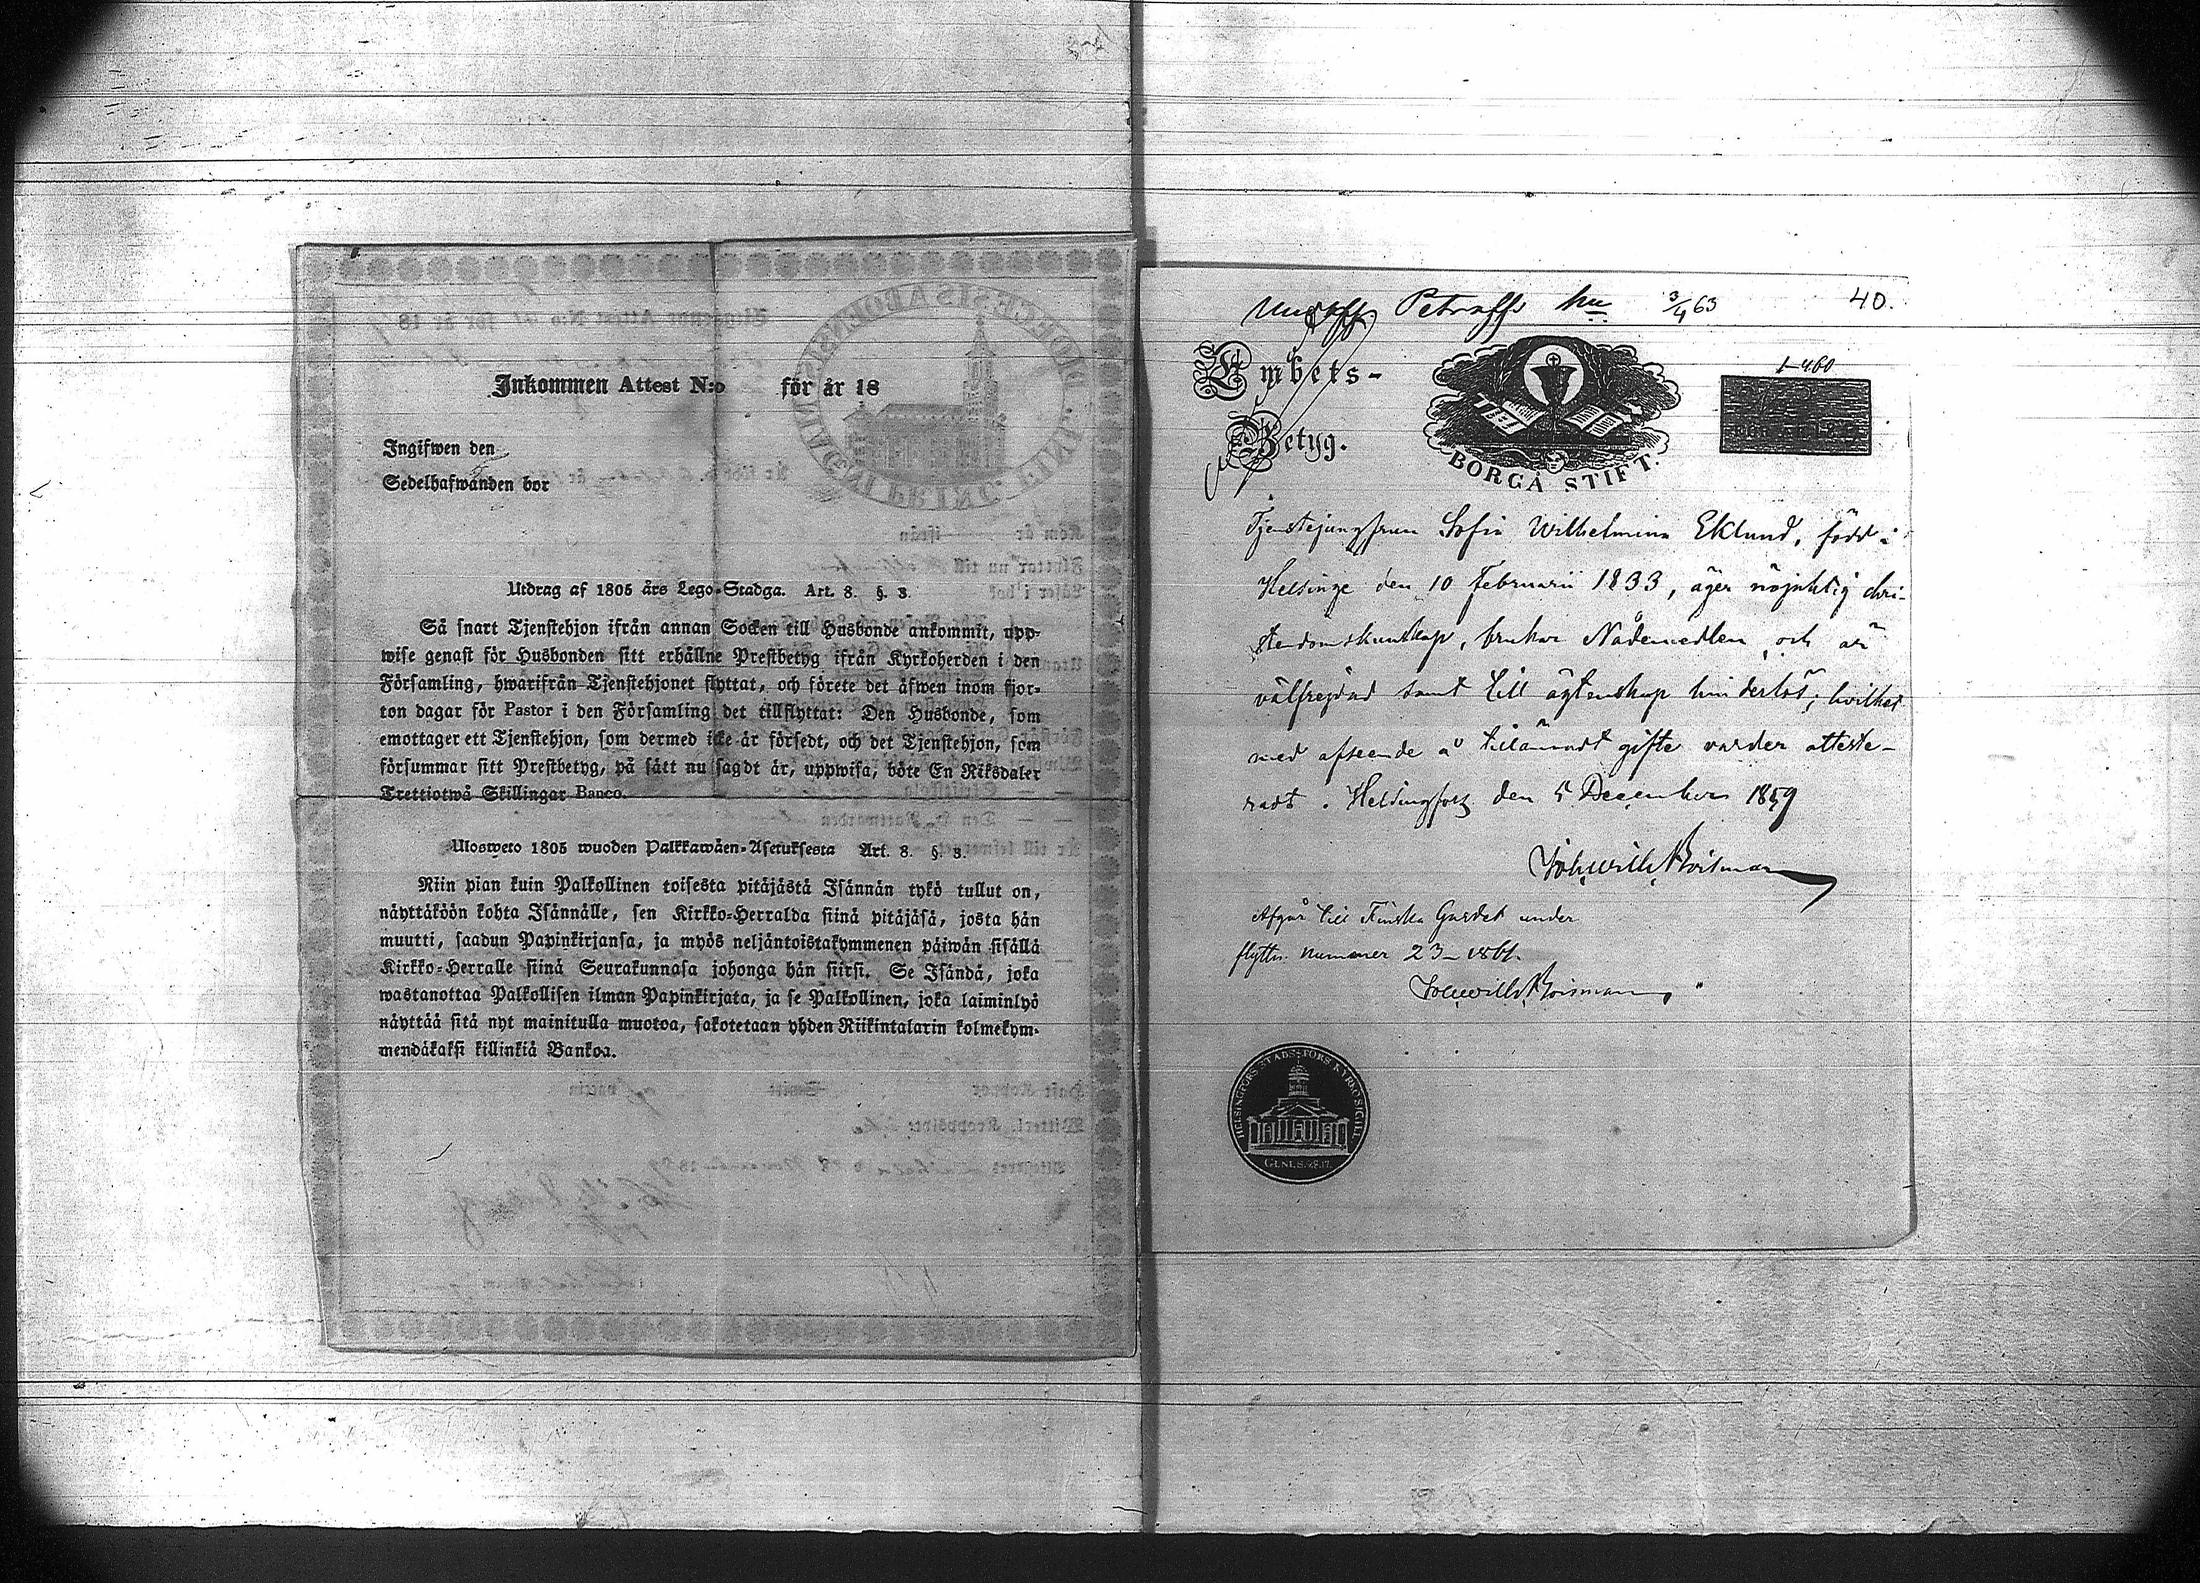 Inkommen Attest N:o för år 18
Ingifwen den
Sedelhafwanden bor
Utdrag af 1805 års Lego-Stadga. Art. 8. §. 3.
Så snart Tjenstehjon ifrån annan Socken till Husbonde ankommit, upp-
wise genast för Husbonden sitt erhållne Prestbetyg ifrån Kyrkoherden i den
Församling, hwarifrån Tjenstehjonet flyttat, och förete det äfwen inom fjor-
ton dagar för Pastor i den Församling det tillflyttat: Den Husbonde, som
emottager ett Tjenstehjon, som dermed icke är försedt, och det Tjenstehjon, som
försummar sitt Prestbetyg, på sätt nu sagdt är, uppwisa, böte En Riksdaler
Trettiotwå Skillingar Banco.
Ulosweto 1805 wuoden Palkkawäen-Asetuksesta Art. 8. §. 3.
Niin pian kuin Palkollinen toisesta pitäjästä Isännän tykö tullut on,
näyttäköön kohta Isännälle, sen Kirkko-Herralda siinä pitäjäsä, josta hän
muutti, saadun Papinkirjansa, ja myös neljäntoistakymmenen päiwän sisällä
Kirkko-Herralle siinä Seurakunnasa johonga hän siirsi. Se Isändä, joka
wastanottaa Palkollisen ilman Papinkirjata, ja se Palkollinen, joka laiminlyö
näyttää sitä nyt mainitulla muotoa, sakotetaan yhden Riikintalarin kolmekym-
mendäkaksi killinkiä Bankoa.
Petroffs hu 3/4 63 40.
Embets-
Betyg.
BORGÅ STIFT.
1-460
Tjenstejungfrun Sofia Wilhelmina Eklund, född i
Helsinge den 10 Februarii 1833, äger nöjaktig chri-
stendomskunskap, brukar Nådemedlen, och är
välfrejdad samt till ägtenskap hinderlös; hvilket
med afseende å tillämnadt gifte varder atteste-
radt. Helsingfors den 5 December 1859
Joh. Wilh. Roisman
Afgår till Finska Gardet under
flyttn. nummer 23-1861.
Joh. Wilh. Roisman
HELSINGFORS STADS-FÖRS. KYRKO SIGILL
GENES. 28. 17.